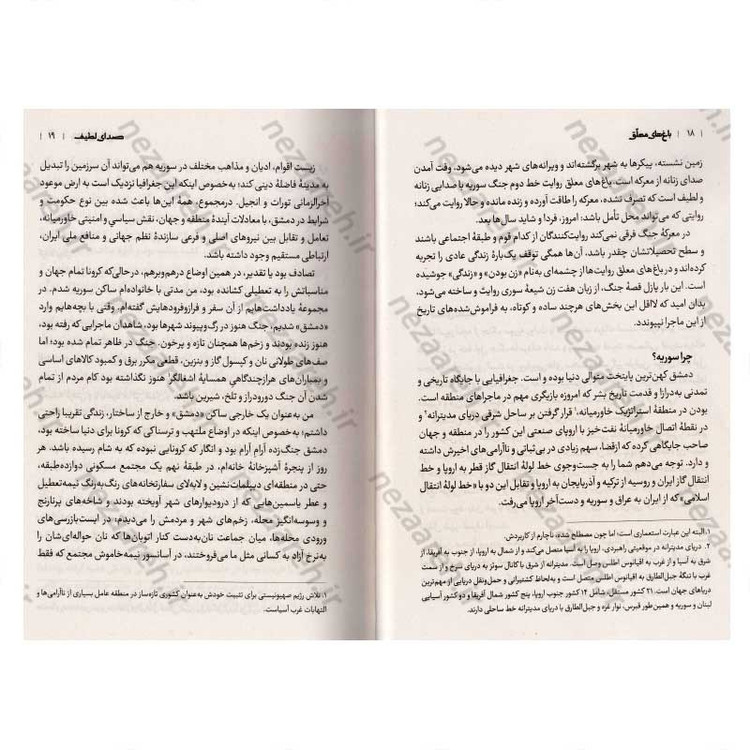 ۱۸ | باغ‌های معلّق
زمین نشسته، پیکرها به شهر برگشته‌اند و ویرانه‌های شهر دیده می‌شود. وقت آمدن
صدای زنانه از معرکه است. باغ‌های معلق روایت خط دوم جنگ سوریه با صدایی زنانه
و لطیف است که تصرف نشده، معرکه را طاقت آورده و زنده مانده و حالا روایت می‌کند؛
روایتی که می‌تواند محل تأمل باشد؛ امروز، فردا و شاید سال‌ها بعد.
در معرکهٔ جنگ فرقی نمی‌کند روایت‌کنندگان از کدام قوم و طبقهٔ اجتماعی باشند
و سطح تحصیلاتشان چقدر باشد، آن‌ها همگی توقف یک‌بارهٔ زندگی عادی را تجربه
کرده‌اند و در باغ‌های معلق روایت‌ها از چشمه‌ای به‌نام «زن بودن» و «زندگی» جوشیده
است. این بار پازل قصهٔ جنگ، از زبان هفت زن شیعهٔ سوری روایت و ساخته می‌شود،
بدان امید که لااقل این بخش‌های هرچند ساده و کوتاه، به فراموش‌شده‌های تاریخ
این ماجرا نپیوندد.
چرا سوریه؟
دمشق کهن‌ترین پایتخت متوالی دنیا بوده و است. جغرافیایی با جایگاه تاریخی و
تمدنی به‌درازا و قدمت تاریخ بشر که امروزه بازیگری مهم در ماجراهای منطقه است.
بودن در منطقهٔ استراتژیک خاورمیانه،۱ قرار گرفتن بر ساحل شرقی دریای مدیترانه۲ و
در نقطهٔ اتصال خاورمیانهٔ نفت‌خیز با اروپای صنعتی این کشور را در منطقه و جهان
صاحب جایگاهی کرده که ازقضا، سهم زیادی در بی‌ثباتی و ناآرامی‌های اخیرش داشته
و دارد. توجه می‌دهم شما را به جست‌وجوی خط لولهٔ انتقال گاز قطر به اروپا و خط
انتقال گاز ایران و روسیه از ترکیه و آذربایجان به اروپا و تقابل این دو با «خط لولهٔ انتقال
اسلامی» که از ایران به عراق و سوریه و دست‌آخر اروپا می‌رفت.
۱. البته این عبارت استعماری است؛ اما چون مصطلح شده، ناچارم از کاربردش.
۲. دریای مدیترانه در موقعیتی راهبردی، اروپا را به آسیا متصل می‌کند و از شمال به اروپا، از جنوب به آفریقا، از
شرق به آسیا و از غرب به اقیانوس اطلس وصل است. مدیترانه از شرق با کانال سوئز به دریای سرخ و از سمت
غرب با تنگهٔ جبل‌الطارق به اقیانوس اطلس متصل است و به‌لحاظ کشتیرانی و حمل‌ونقل دریایی از مهم‌ترین
دریاهای جهان است. ۲۱ کشور مستقل، شامل ۱۴ کشور جنوب اروپا، پنج کشور شمال آفریقا و دو کشور آسیایی
لبنان و سوریه و همین‌طور قبرس، نوار غزه و جبل‌الطارق با دریای مدیترانه خط ساحلی دارند.
صدای لطیف | ۱۹
زیست اقوام، ادیان و مذاهب مختلف در سوریه هم می‌تواند آن سرزمین را تبدیل
به مدینهٔ فاضلهٔ دینی کند؛ به‌خصوص اینکه این جغرافیا نزدیک است به ارض موعود
آخرالزمانی تورات و انجیل. درمجموع، همهٔ این‌ها باعث شده بین نوع حکومت و
شرایط در دمشق، با معادلات آیندهٔ منطقه و جهان، نقش سیاسی و امنیتی خاورمیانه،
تعامل و تقابل بین نیروهای اصلی و فرعی سازندهٔ نظم جهانی و منافع ملی ایران،
ارتباطی مستقیم وجود داشته باشد.
تصادف بود یا تقدیر، در همین اوضاع درهم‌وبرهم، درحالی‌که کرونا تمام جهان و
مناسباتش را به تعطیلی کشانده بود، من مدتی با خانواده‌ام ساکن سوریه شدم. در
مجموعهٔ یادداشت‌هایم از آن سفر و فرازوفرودهایش گفته‌ام. وقتی با بچه‌هایم وارد
«دمشق» شدیم، جنگ هنوز در رگ‌وپیوند شهرها بود، شاهدان ماجرایی که رفته بود،
هنوز زنده بودند و زخم‌ها همچنان تازه و پرخون. جنگ در ظاهر تمام شده بود؛ اما
صف‌های طولانی نان و کپسول گاز و بنزین، قطعی مکرر برق و کمبود کالاهای اساسی
و بمباران‌های هرازچندگاهی همسایهٔ اشغالگر۱ هنوز نگذاشته بود کام مردم از تمام
شدن آن جنگ دورودراز و تلخ، شیرین باشد.
من به‌عنوان یک خارجی ساکن «دمشق» و خارج از ساختار، زندگی تقریبا راحتی
داشتم؛ به‌خصوص اینکه در اوضاع ملتهب و ترسناکی که کرونا برای دنیا ساخته بود،
دمشق جنگ‌زده آرام آرام بود و انگار که کرونایی نبوده که به شام رسیده باشد. هر
روز از پنجرهٔ آشپزخانهٔ خانه‌ام، در طبقهٔ نهم یک مجتمع مسکونی دوازده‌طبقه،
حتی در منطقه‌ای دیپلمات‌نشین و لابه‌لای سفارتخانه‌های رنگ‌به‌رنگ نیمه‌تعطیل
و عطر یاسمین‌هایی که از درودیوارهای شهر آویخته بودند و شاخه‌های پرنارنج
و وسوسه‌انگیز محله، زخم‌های شهر و مردمش را می‌دیدم؛ در ایست‌بازرسی‌های
ورودی محله‌ها، میان جماعت نان‌به‌دست کنار اتوبان‌ها که نان حواله‌ای‌شان را
به‌نرخ آزاد به کسانی مثل ما می‌فروختند، در آسانسور نیمه‌خاموش مجتمع که فقط
۱. تلاش رژیم صهیونیستی برای تثبیت خودش به‌عنوان کشوری تازه‌ساز در منطقه عامل بسیاری از ناآرامی‌ها و
التهابات غرب آسیاست.
nezaareh.ir